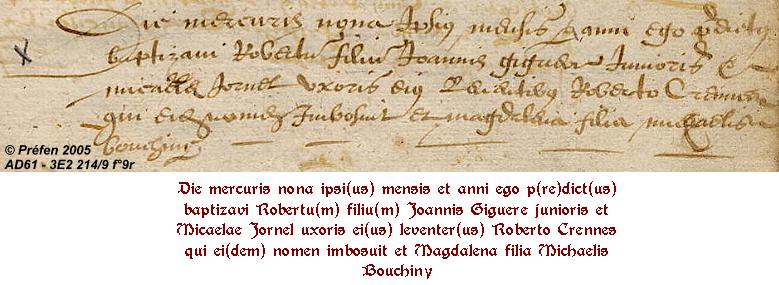 Die mercuris nona Ipsius mensis & anni ego p̄dictus
baptizavi Robertū filiū Joannis giguere Junioris &
Jornel uxoris eius Roberto Crennes
qui nomen Imbosuit et magdalena filia michaelis
bouchiny
© Préfen 2005
AD61 - 3E2 214/9 f°9r
Die mercuris nona ipsi(us) mensis et anni ego p(re)dict(us)
baptizavi Robertu(m) filiu(m) Joannis Giguere junioris et
Micaelae Jornel uxoris ei(us) leventer(us) Roberto Crennes
qui ei(dem) nomen imbosuit et Magdalena filia Michaelis
Bouchiny